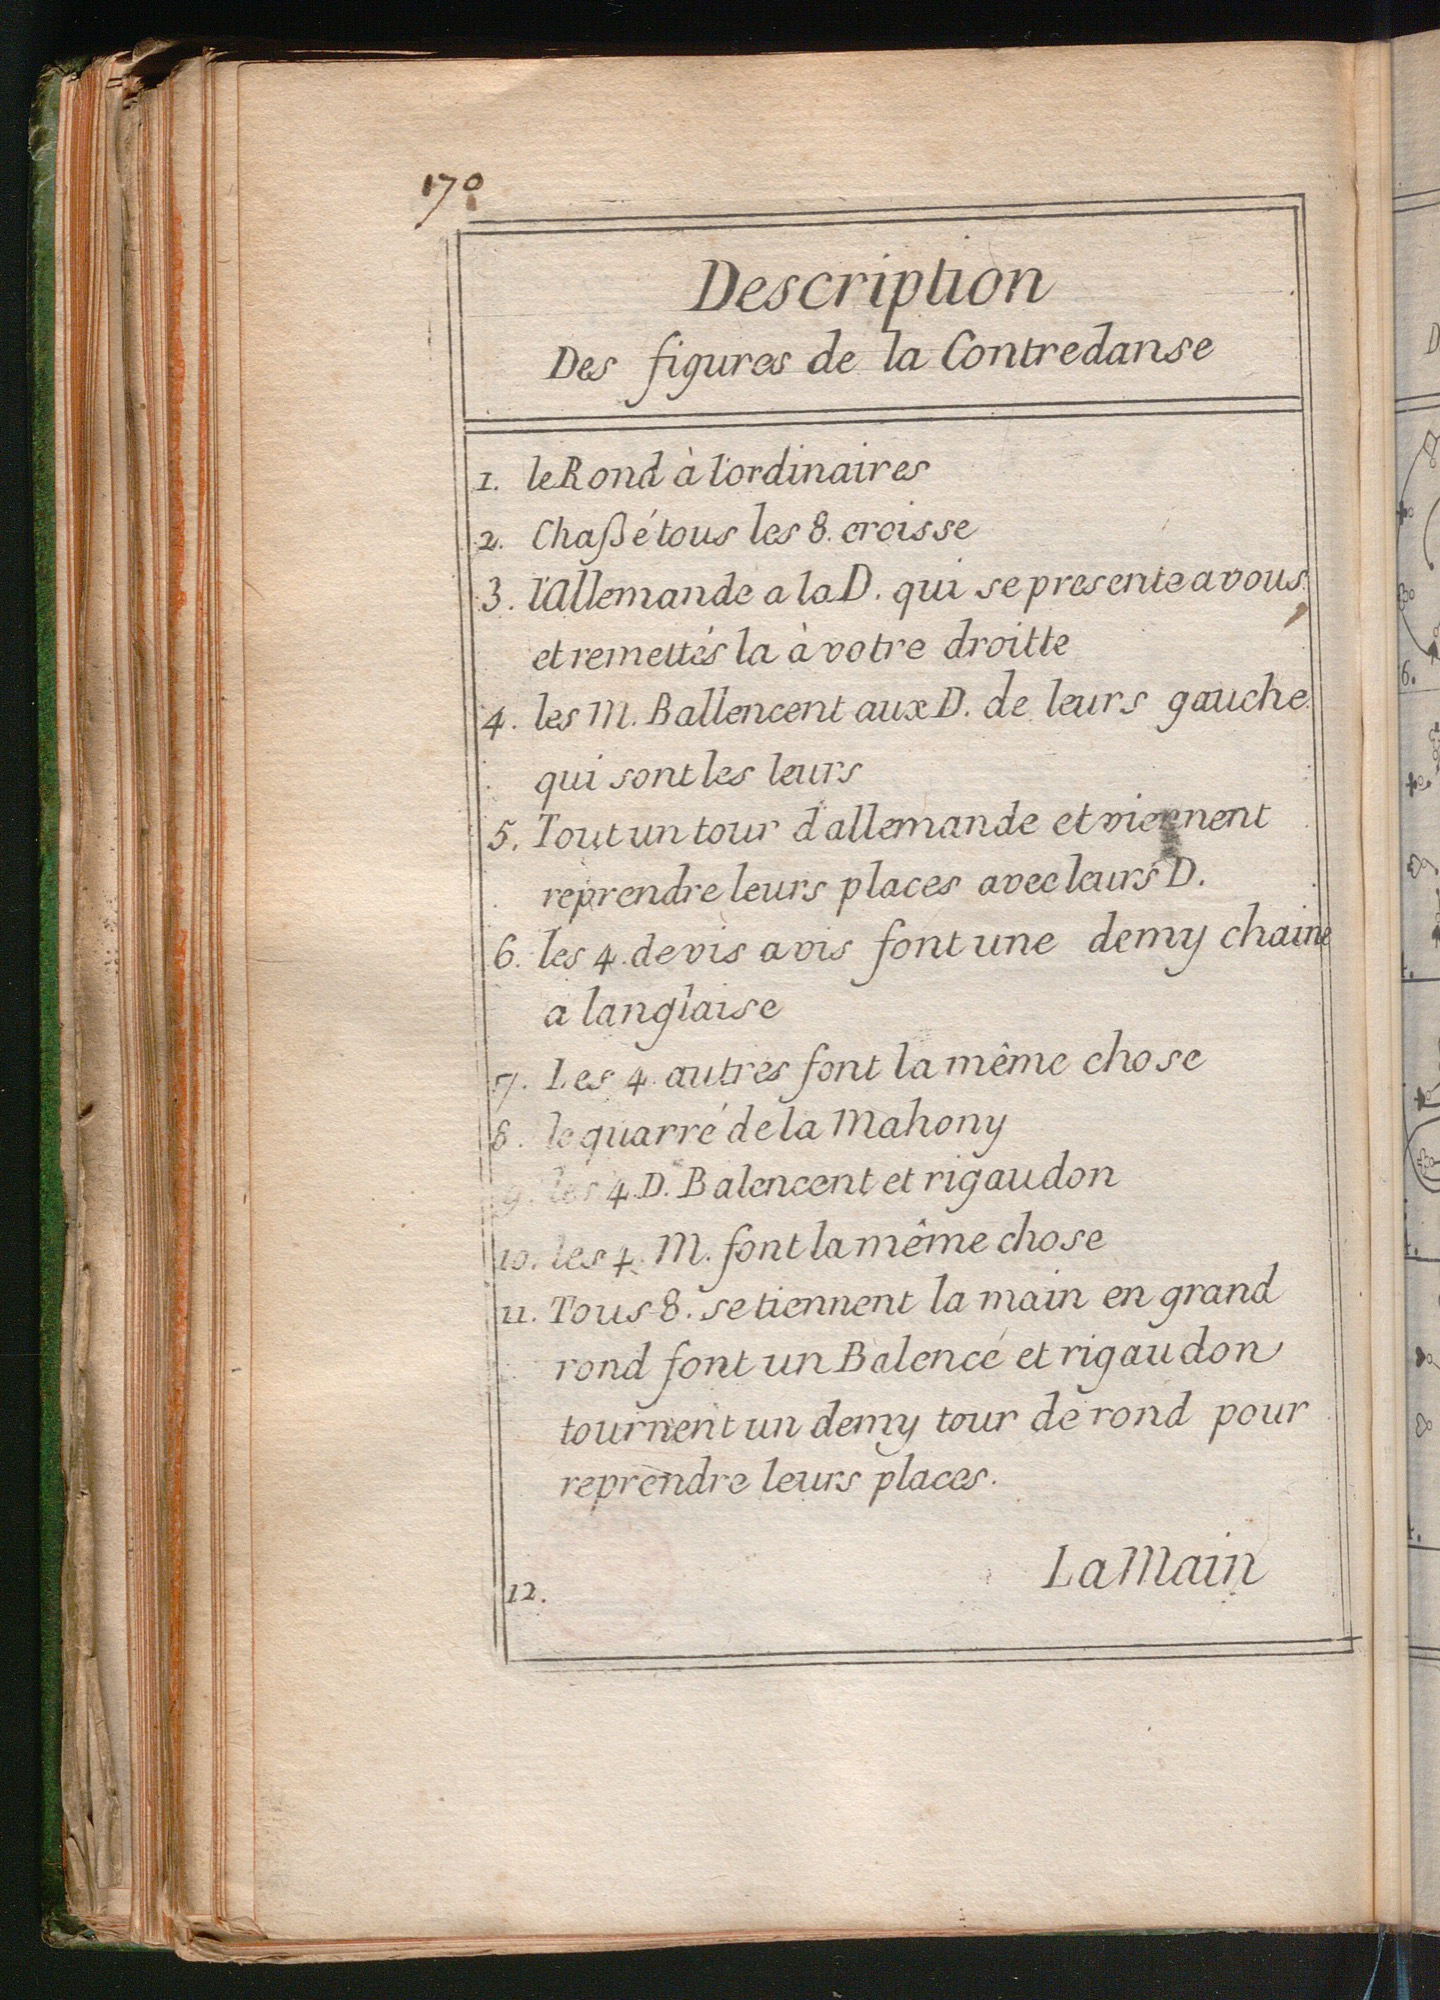 170
Description
Des figures de la Contredanse
1. le Rond à l'ordinaires
2. Chaßé tous les 8. croisse
3. l'Allemande a la D. qui se presente a vous
et remettés la à votre droitte
4. les M. Ballencent aux D. de leurs gauche
qui sont les leurs
5. Tout un tour d'allemande et viennent
reprendre leurs places avec leurs D.
6. les 4. de vis a vis font une demy chaine
a langlaise
7. Les 4. autres font la même chose
8. le quarré de la Mahony
9. les 4. D. Balencent et rigaudon
10. les 4. M. font la même chose
11. Tous 8. se tiennent la main en grand
rond font un Balencé et rigaudon
tournent un demy tour de rond pour
reprendre leurs places.
La Main
12.
6.